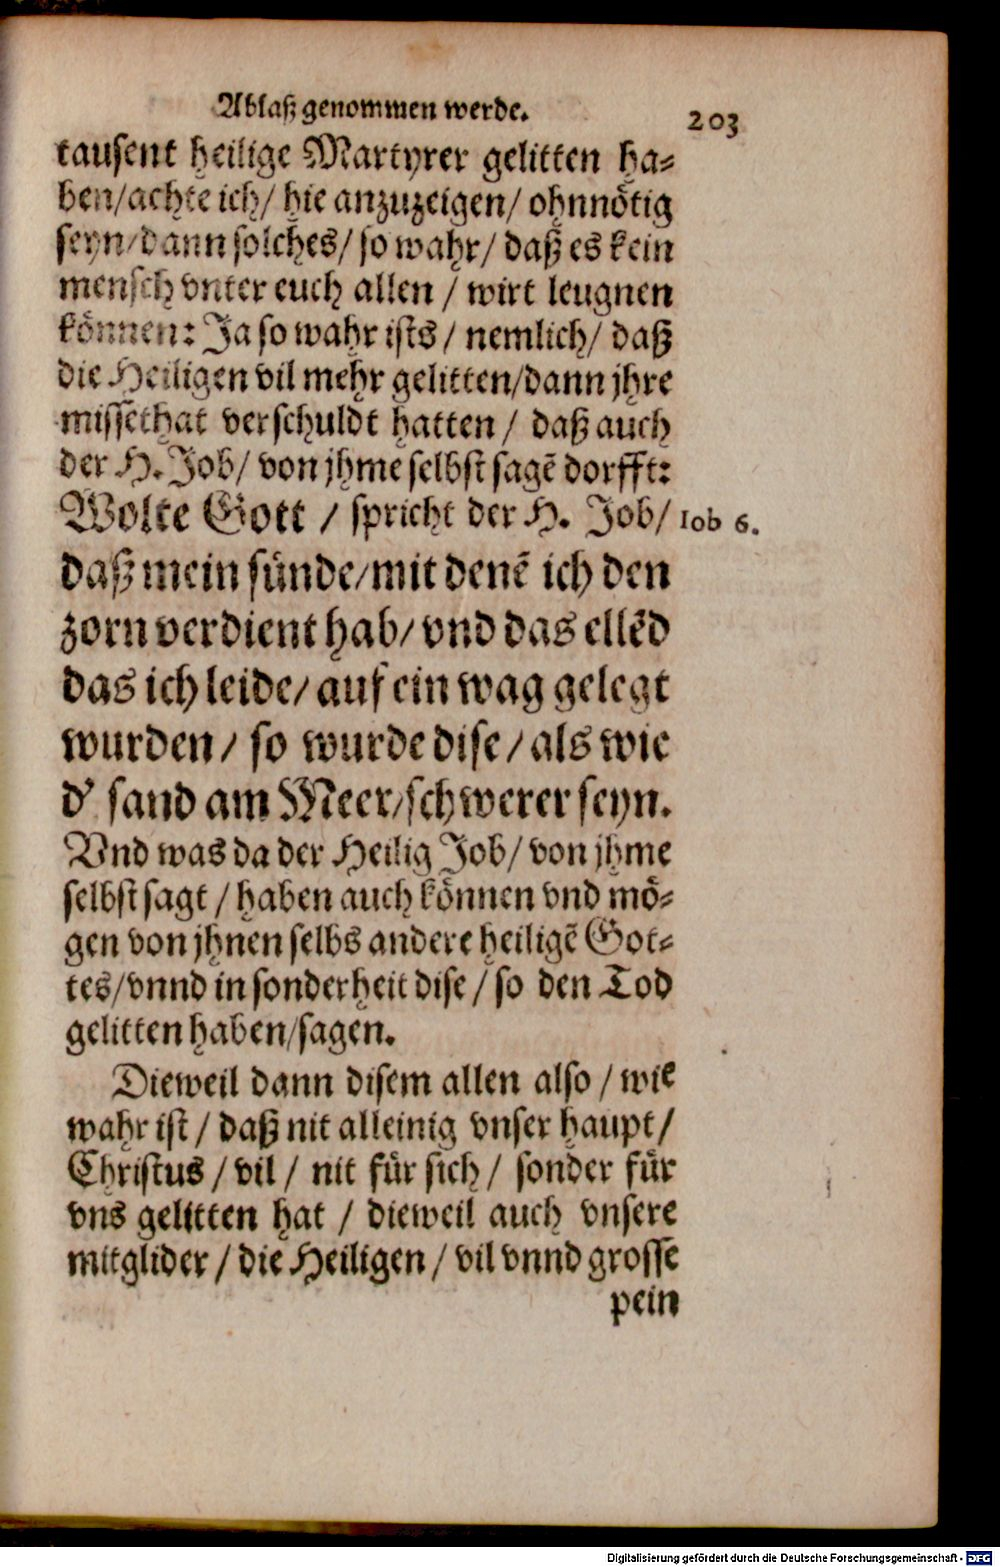 Ablaß genommen werde.
203
tausent heilige Martyrer gelitten ha⸗
ben/achte ich/ hie anzuzeigen/ ohnnötig
seyn/dann solches/ so wahr/ daß es kein
mensch vnter euch allen / wirt leugnen
können: Ja so wahr ists / nemlich/ daß
die Heiligen vil mehr gelitten/dann jhre
missethat verschuldt hatten / daß auch
der H. Job/ von jhme selbst sagē dorfft:
Wolte Gott / spricht der H. Job/
Iob 6.
daß mein sünde/mit denē ich den
zorn verdient hab/ vnd das ellēd
das ich leide/ auf ein wag gelegt
wurden/ so wurde dise/ als wie
d' sand am Meer/schwerer seyn.
Vnd was da der Heilig Job/ von jhme
selbst sagt / haben auch können vnd mö⸗
gen von jhnen selbs andere heiligē Got⸗
tes/vnnd in sonderheit dise / so den Tod
gelitten haben/sagen.
Dieweil dann disem allen also / wie
wahr ist / daß nit alleinig vnser haupt/
Christus / vil / nit für sich / sonder für
vns gelitten hat / dieweil auch vnsere
mitglider / die Heiligen / vil vnnd grosse
pein
Digitalisierung gefördert durch die Deutsche Forschungsgemeinschaft - DFG